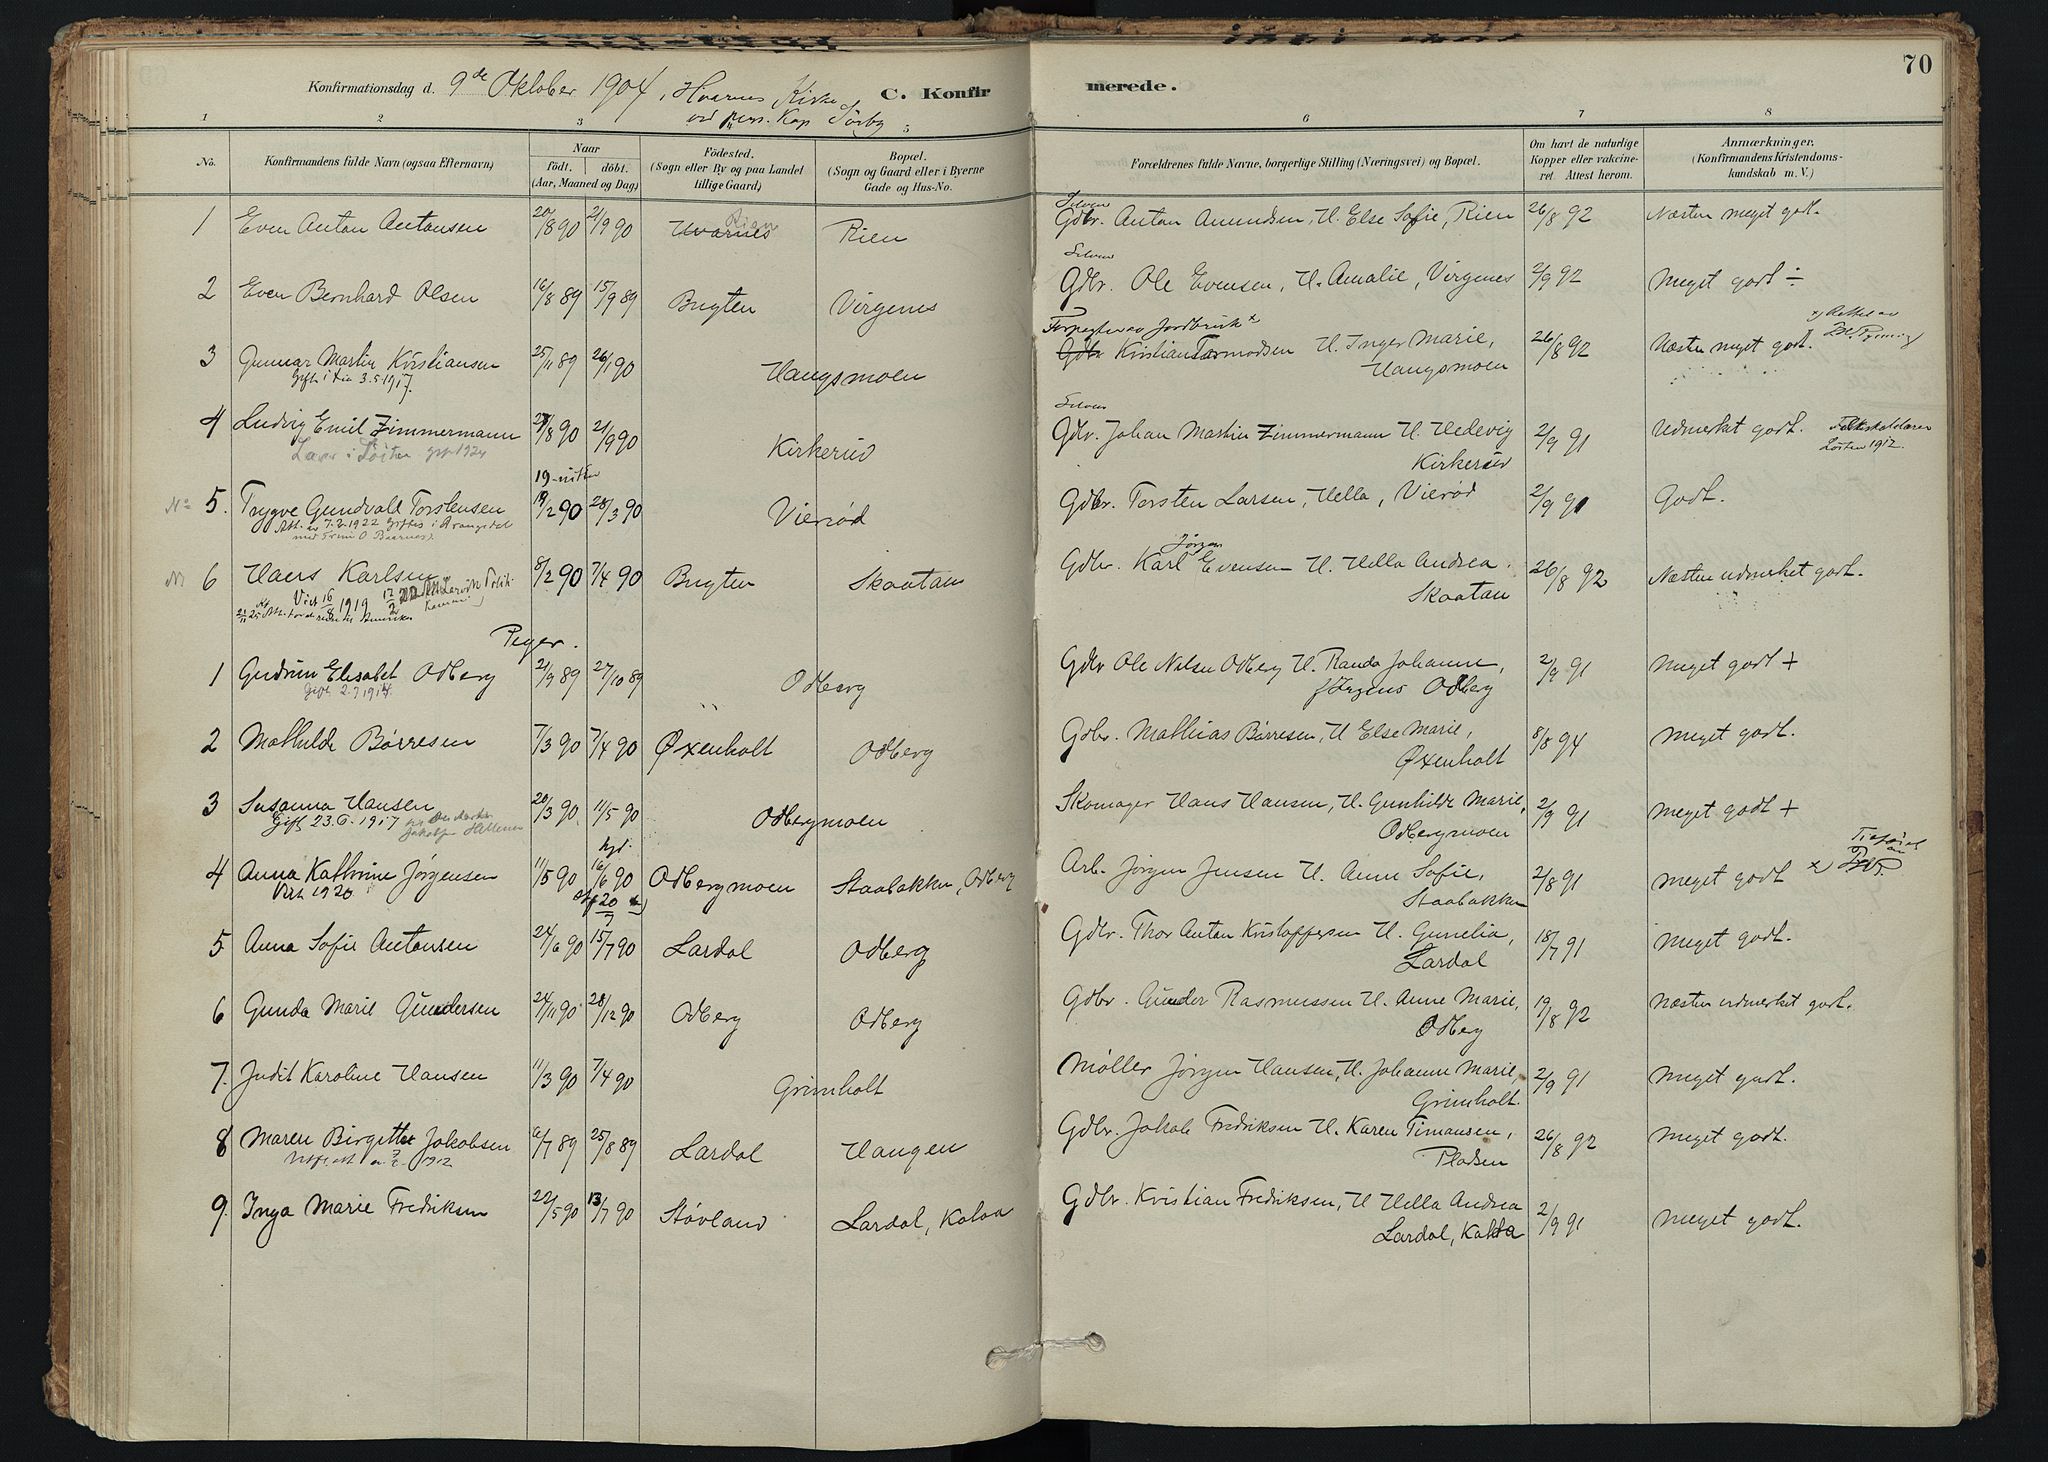 70
Konfirmationsdag d. 9de Oktober 1904, Hvarnes Kirke
ved pers. Kap Sørby
C. Konfirmerede.
1 2 3 5 6 7 8
No. Konfirmandens fulde Navn (ogsaa Efternavn). Naar født. døbt. (Aar, Maaned og Dag) Födested. (Sogn eller By og paa Landet tillige Gaard) Bopæl. (Sogn og Gaard eller i Byerne Gade og Hus-No. Forældrenes fulde Navne, borgerlige Stilling (Næringsvei) og Bopæl. Om havt de naturlige Kopper eller vakcineret. Attest herom. Anmærkninger. (Konfirmandens Kristendomskundskab m. V.)
1 Even Anton Antonsen 20/8 90 21/9 90 Hvarnes Rien Rien Selveier Gdbr. Anton Amundsen, H. Else Sofie, Rien 26/8 92 Næsten meget godt.
2 Even Bernhard Olsen 16/8 89 15/9 89 Bugten Virgenes Gdbr. Ole Evensen, H. Amalie, Virgenes 2/9 92 Meget godt ÷
3 Gunnar Martin Kristiansen 25/11 89 26/1 90 Haugsmoen Forpagter av Jordbruk x Gdbr Kristian Tormodsen H. Inger Marie, Haugsmoen 26/8 92 Næsten meget godt. x) Rettet av
Gift i Lien 3.5.1917.
4 Ludvig Emil Zimmermann 27/8 90 21/9 90 Kirkerud Gdbr. Johan Martin Zimmermann H. Hedevig Kirkerud 2/9 91 Udmerket godt.
Løiten 1912.
5. Trygve Gundvald Torstensen 19/2 90 28/3 90 Vierød Gdbr. Torsten Larsen, Hella, Vierød 2/9 91 Godt.
Att. av 7.2.1922 Giftes i
6 Hans Karlsen 8/2 90 7/4 90 Bugten Skaatan Gdbr. Karl Jørgen Evensen H. Hella Andrea. Skaatan 26/8 92 Næsten udmerket godt.
Viet 16/8 1919
Piger.
1 Gudrun Elisabet Odberg 21/9 89 27/10 89 Odberg Gdbr Ole Nilsen Odberg H. Randa Johanne, f. Irgens Odberg 2/9 91 Meget godt +
Gift 2.7.1914.
2 Mathilde Børresen 7/3 90 7/4 90 Øxenholt Odberg Gdbr. Mathias Børresen, H Else Marie, Øxenholt 8/8 94 Meget godt.
3 Susanna Hansen 20/3 90 11/5 90 Odbergmoen Skomager Hans Hansen, H. Gunhilde Marie, Odbergmoen 2/9 91 Meget godt +
Gift 23.6.1917
4 Anna Kathrine Jørgensen 11/5 90 hjd. 16/6 90 Odbergmoen Staabakken, Odberg Arb. Jørgen Jensen H. Anne Sofie, Staabakken 2/8 91 Meget godt x) Tilføiet av
Viet 1920
5 Anna Sofie Antonsen 24/6 90 15/7 90 Lardal Odberg Gdbr. Thor Anton Kristoffersen H. Gunelia, Lardal 18/7 91 Meget godt.
6 Gunda Marie Gundersen 24/11 90 28/12 90 Odberg Odberg Gdbr. Gunder Rasmussen H. Anne Marie, Odberg 19/8 92 Næsten udmerket godt.
7. Judit Karoline Hansen 11/3 90 7/4 90 Grimholt Møller Jørgen Hansen, H. Johanne Marie, Grimholt. 2/9 91 Meget godt.
8 Maren Birgitte Jakobsen 6/7 89 25/8 89 Lardal Haugen Gdbr. Jakob Fredriksen H. Karen Timansen, Pladsen 26/8 92 Meget godt.
9. Inga Marie Fredriksen 22/5 90 13/7 90 Støvland Lardal, Kaloa Gdbr. Kristian Fredriksen, H Hella Andrea Lardal, Kaloa 2/9 91 Meget godt.